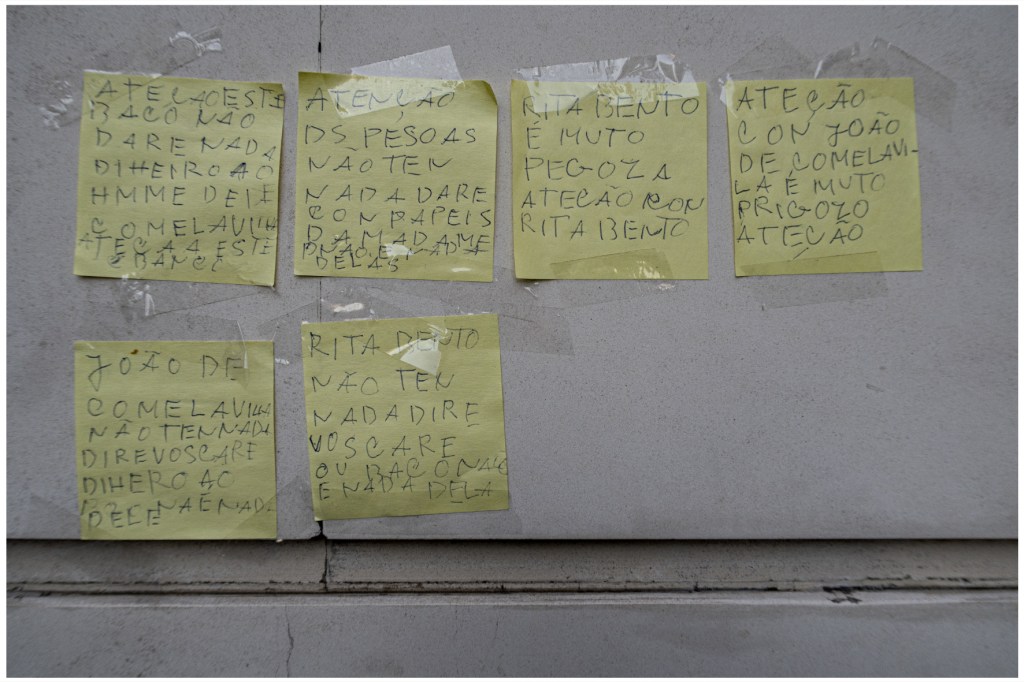 ATECAO ESTE
BACO NAO
DARE NADA
DIHEIRO AO
HMME DELE
COMELAVILHA
ATEÇAA ESTE
ATENÇÃO
DS PESOAS
NÃO TEN
NADA DARE
CON PAPEIS
DAMADAME
DELAS
RITA BENTO
É MUTO
PEGOZA
ATECÃO CON
RITA BENTO
ATEÇÃO
CON JOÃO
DE COMELAVI-
LA É MUTO
PRIGOZO
ATEÇÃO
JOÃO DE
COMELAVILHA
NÃO TEN NADA
DIRE VOSCARE
DIHERO AO
NAÉ NADA
DELE
RITA BENTO
NÃO TEN
NADA DIRE
VOSCARE
OU BACO NAO
E NADA DELA